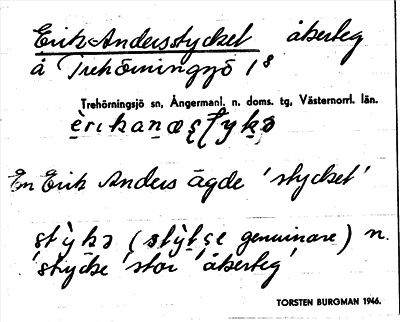 Erik-Andersstycket åkerteg
å Trehörningsjö 1⁸
Trehörningsjö sn, Ångermanl. n. doms. tg, Västernorrl. län.
En Erik Anders ägde 'stycket'
stỳkə (stỳtse genuinare) n.
'stycke' stor 'åkerteg'
TORSTEN BURGMAN 1946.